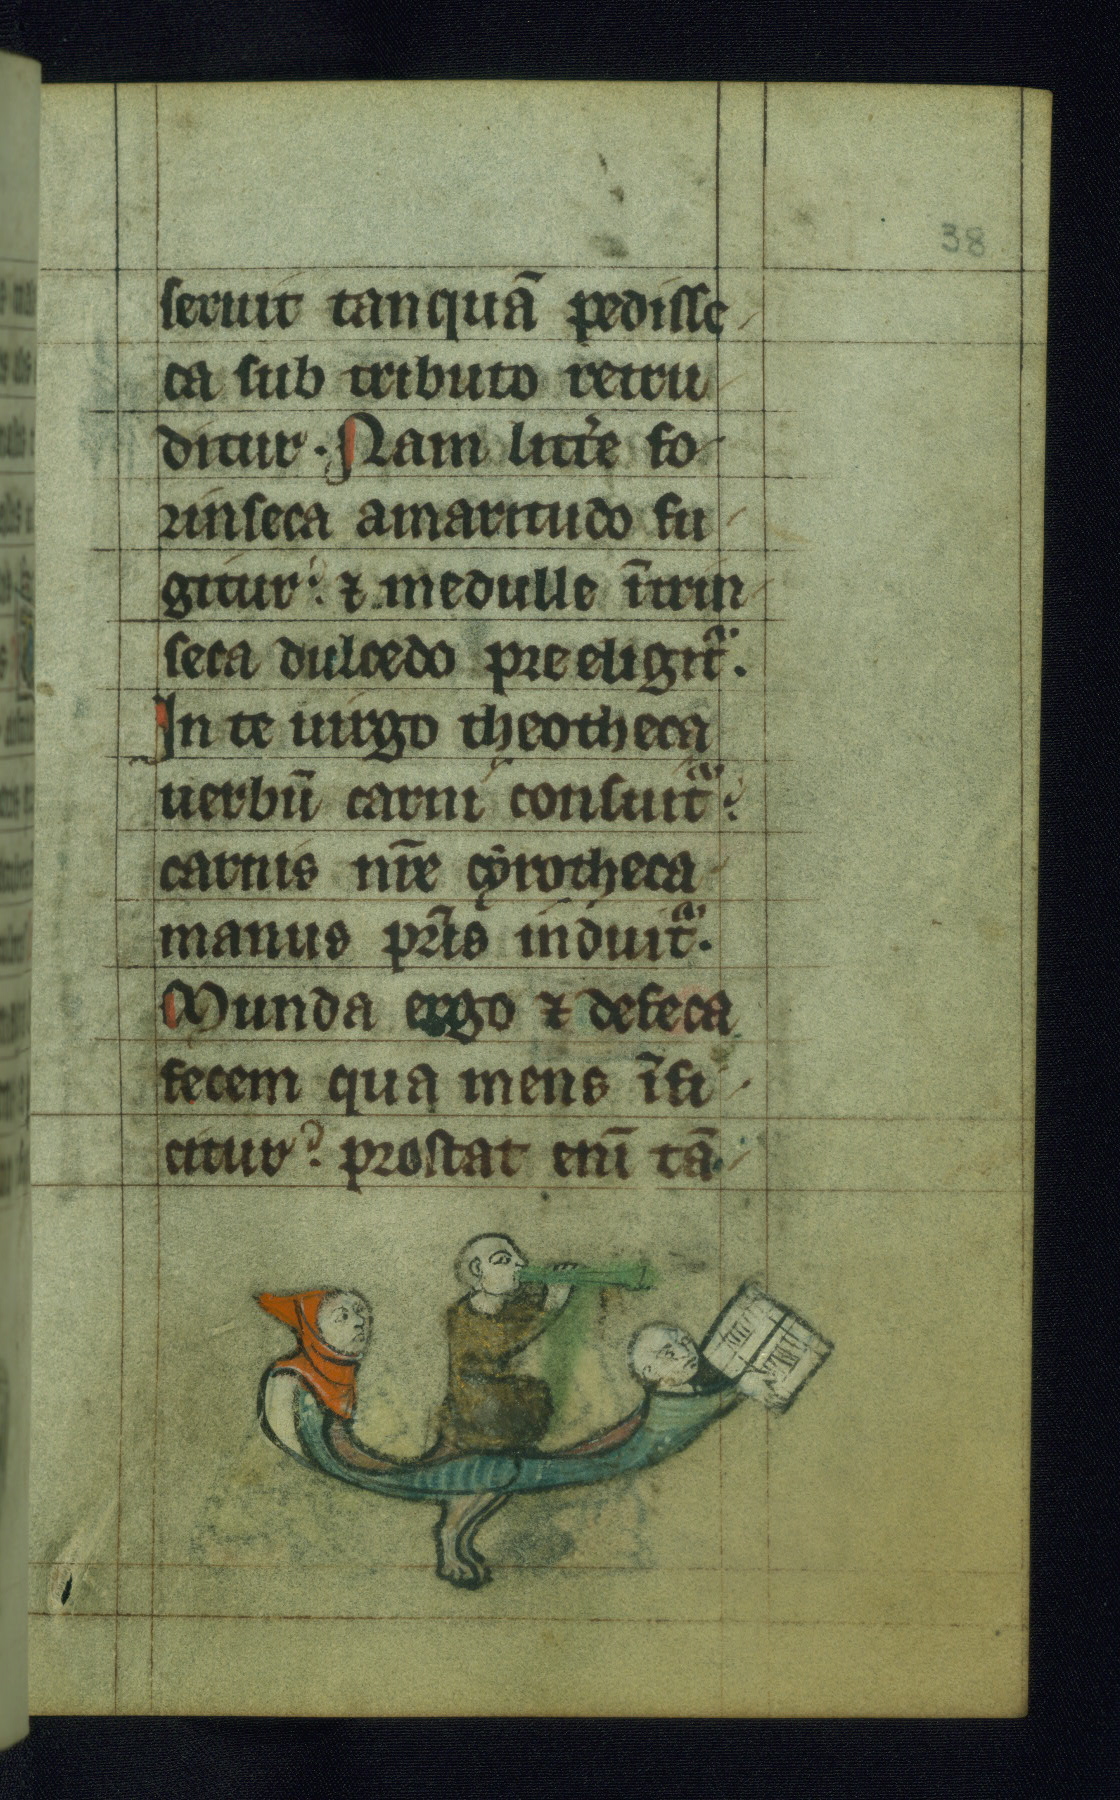 38
seruit tanquā pedisse
ca sub tributo retru
ditur. Nam litt̾e fo
rinseca amaritudo fu
gitur: ⁊ medulle īt̾rin
seca dulcedo preeligit᷑.
In te uirgo theotheca
uerbū carni consuit᷑:
carnis nr̄e cyrotheca
manus pr̄is induit᷑.
Munda ergo ⁊ defeca
fecem qua mens īfi
citur? prostat enī tā